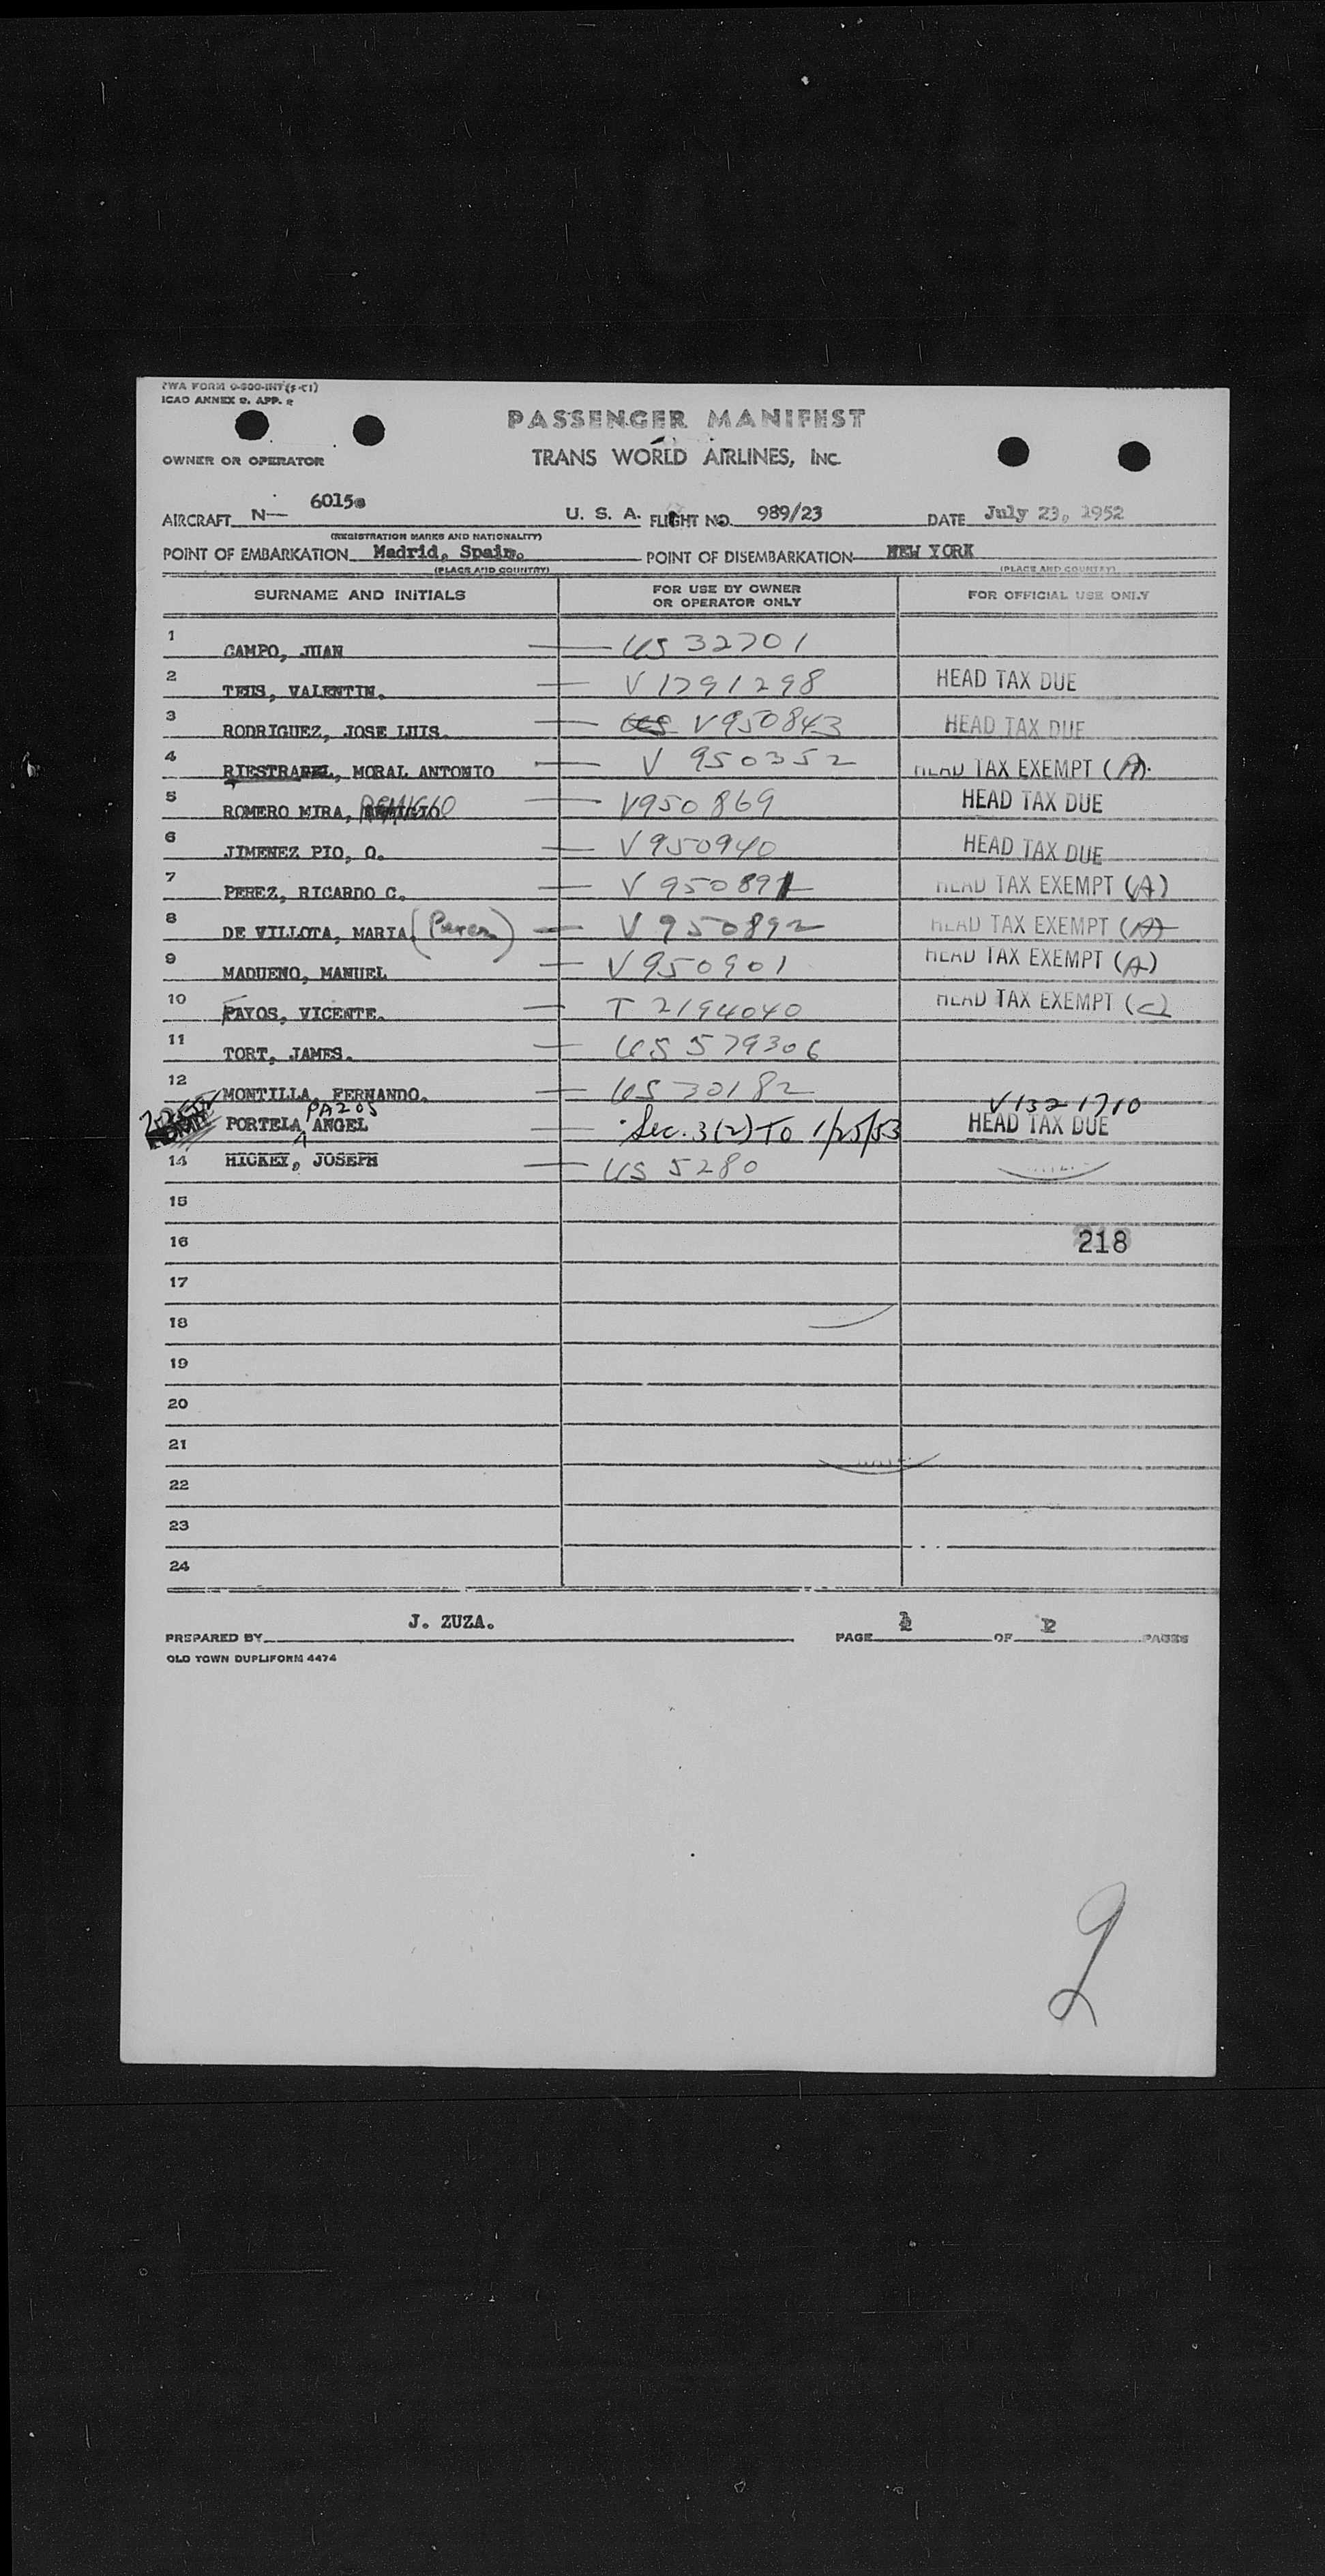 TWA FORM 0-800-INT(5-51)
ICAO ANNEX 9, APP. 2
PASSENGER MANIFEST
OWNER OR OPERATOR TRANS WORLD AIRLINES, INC.
AIRCRAFT N— 6015 U. S. A. FLIGHT NO. 989/23 DATE July 23, 1952
(REGISTRATION MARKS AND NATIONALITY)
POINT OF EMBARKATION Madrid, Spain. POINT OF DISEMBARKATION NEW YORK
(PLACE AND COUNTRY) (PLACE AND COUNTRY)
SURNAME AND INITIALS FOR USE BY OWNER OR OPERATOR ONLY FOR OFFICIAL USE ONLY
1 CAMPO, JUAN — US 32701
2 TEUS, VALENTIN. — V 1291298 HEAD TAX DUE
3 RODRIGUEZ, JOSE LUIS. — V950843 HEAD TAX DUE
4 RIESTRADEL, MORAL ANTONIO — V 950352 HEAD TAX EXEMPT (A).
5 ROMERO MIRA, REMIGIO — V950869 HEAD TAX DUE
6 JIMENEZ PIO, O. — V950940 HEAD TAX DUE
7 PEREZ, RICARDO C. — V 950891 HEAD TAX EXEMPT (A)
8 DE VILLOTA, MARIA (Perez) — V 950892 HEAD TAX EXEMPT (A)
9 MADUENO, MANUEL — V950901 HEAD TAX EXEMPT (A)
10 PAYOS, VICENTE. — T 2194040 HEAD TAX EXEMPT (C)
11 TORT, JAMES. — US 579306
12 MONTILLA, FERNANDO. — US 30182
PAZOS V1321710
PORTELA, ANGEL — Sec. 3(2) TO 1/25/53 HEAD TAX DUE
14 HICKEY, JOSEPH — US 5280
15
16 218
17
18
19
20
21
22
23
24
PREPARED BY J. ZUZA. PAGE OF 2 PAGES
OLD TOWN DUPLIFORM 4474